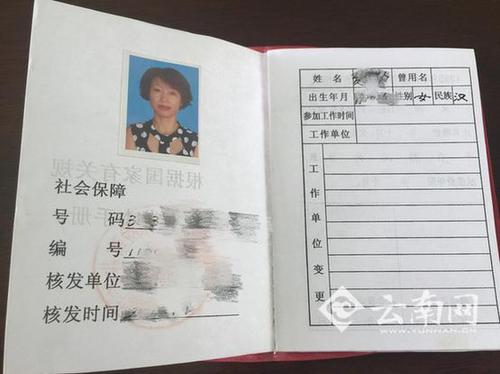 根据国家有关规
手册
社会保障
号 码 3 3
编 号 11
核发单位
核发时间
姓名 曾用名
出生年月 性别 女 民族 汉
参加工作时间
工作单位
工作单位变更
云南网
WWW.YUNNAN.CN